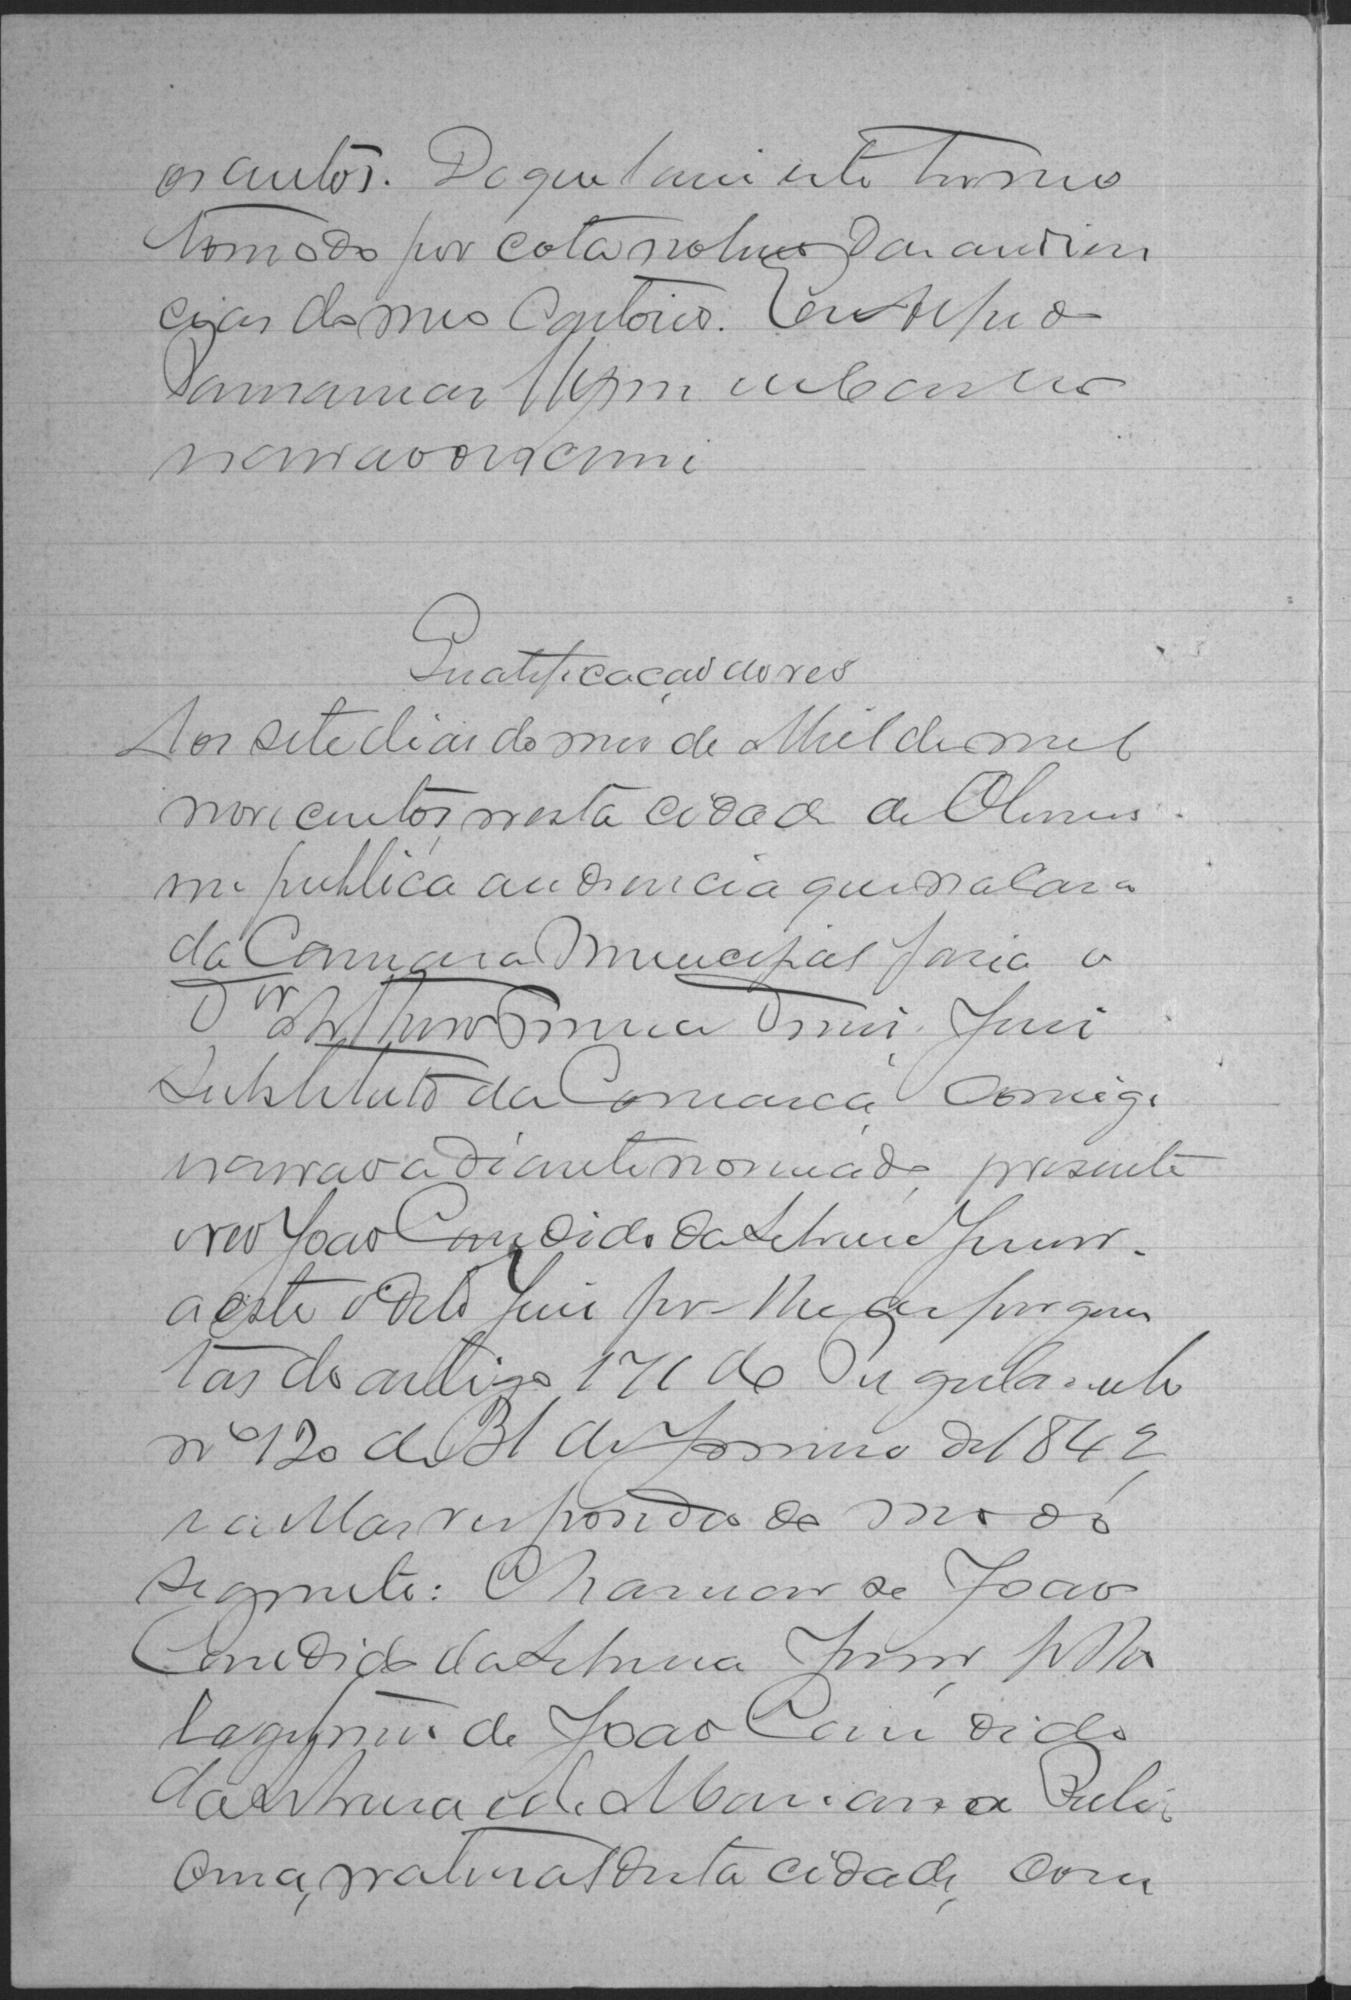 os autos. Do que lavrei este termo
tomado por cota no livro das audien
cias do meo Cartorio. Eu
escrivão o escrevi
Qualificação do reo
Aos sete dias do mes de Abril de mil
novecentos, nesta cidade de
em publica audiencia que na casa
da Camara Municipal fasia o
Dr Arthur Juis
Substituto da Comarca, comigo
escrivão adiante nomeado, presente
o reo João Candido da Silveira Junior.
a este o dito Juis fes-lhe as pergun
tas do artigo 171 do Regulamento
nº 120 de 31 de Janeiro de 1842
e a ellas respondeo do modo
seguinte: Chamar-se João
Candido da Silveira Junior, filho
legitimo de João Candido
da Silveira e de Marianna
natural desta cidade, com